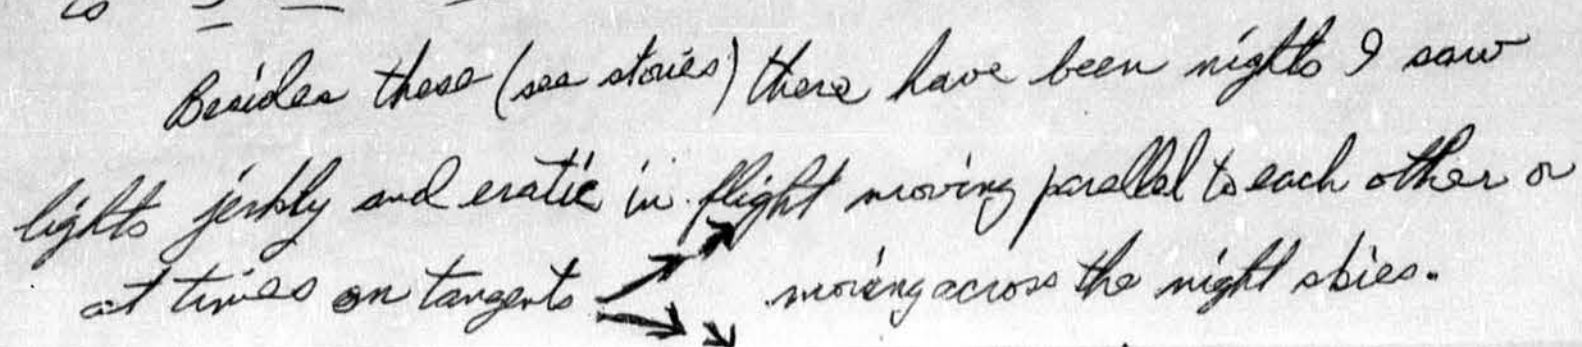 Besides these (see stories) there have been nights I saw
lights jerkly and eratic in flight moving parallel to each other or
at times on tangents moving across the night skies.